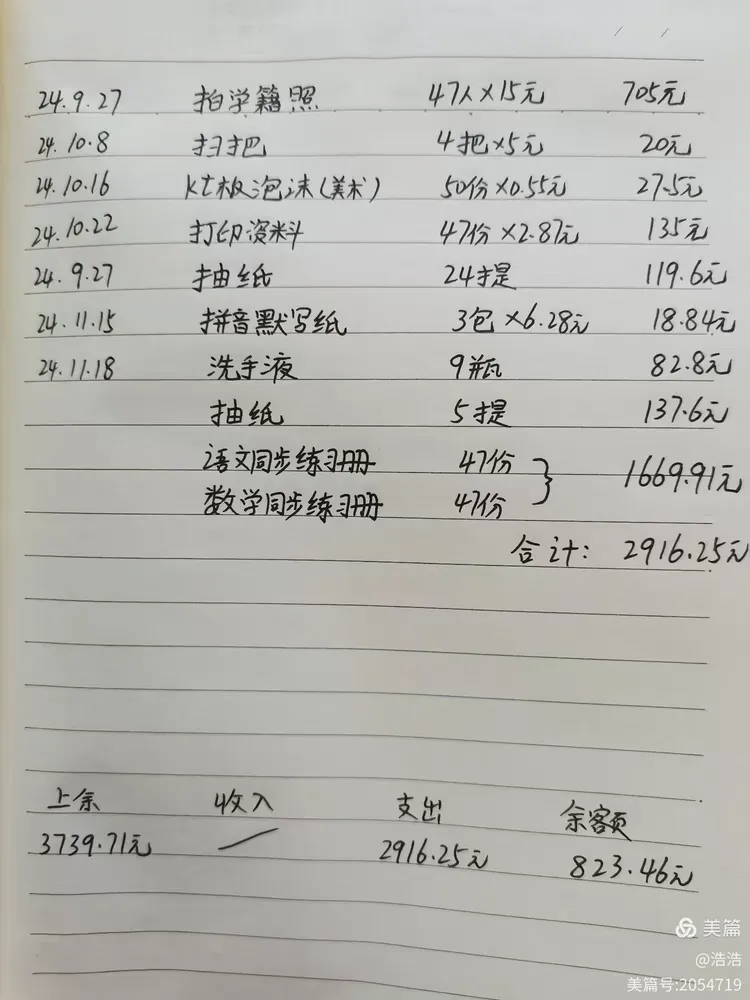 24.9.27 拍学籍照 47人×15元 705元
24.10.8 扫把 4把×5元 20元
24.10.16 kt板泡沫(美术) 50份×0.55元 27.5元
24.10.22 打印资料 47份×2.87元 135元
24.9.27 抽纸 24提 119.6元
24.11.15 拼音默写纸 3包×6.28元 18.84元
24.11.18 洗手液 9瓶 82.8元
抽纸 5提 137.6元
语文同步练习册 47份
数学同步练习册 47份 } 1669.91元
合计: 2916.25元
上余 收入 支出 余额
3739.71元 / 2916.25元 823.46元
美篇
@浩浩
美篇号:2054719